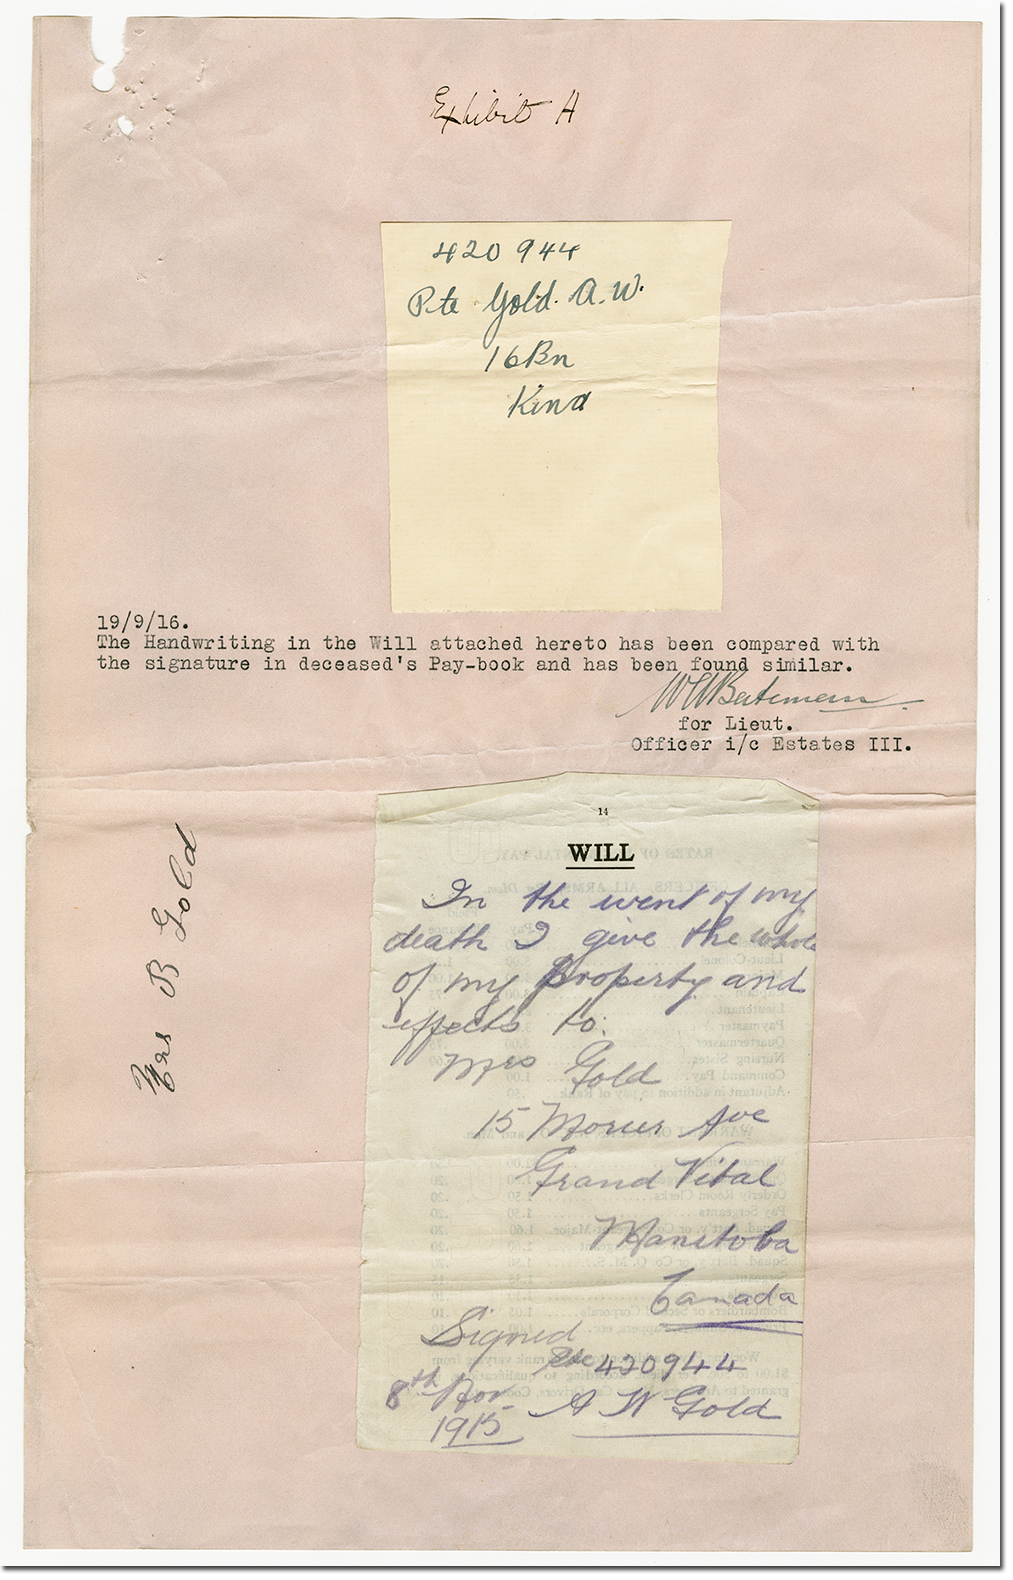 Exhibit A
420944
Pte Gold. A.W.
16Bn
Kind
19/9/16.
The Handwriting in the Will attached hereto has been compared with
the signature in deceased's Pay-book and has been found similar.
for Lieut.
Officer i/c Estates III.
Mrs B Gold
14
WILL
In the event of my
death I give the whole
of my Property and
effects to:
Mrs Gold
15 Morier Ave
Grand Vital
Manitoba
Canada
Signed
Pte 420944
8th Nov
A W Gold
1915